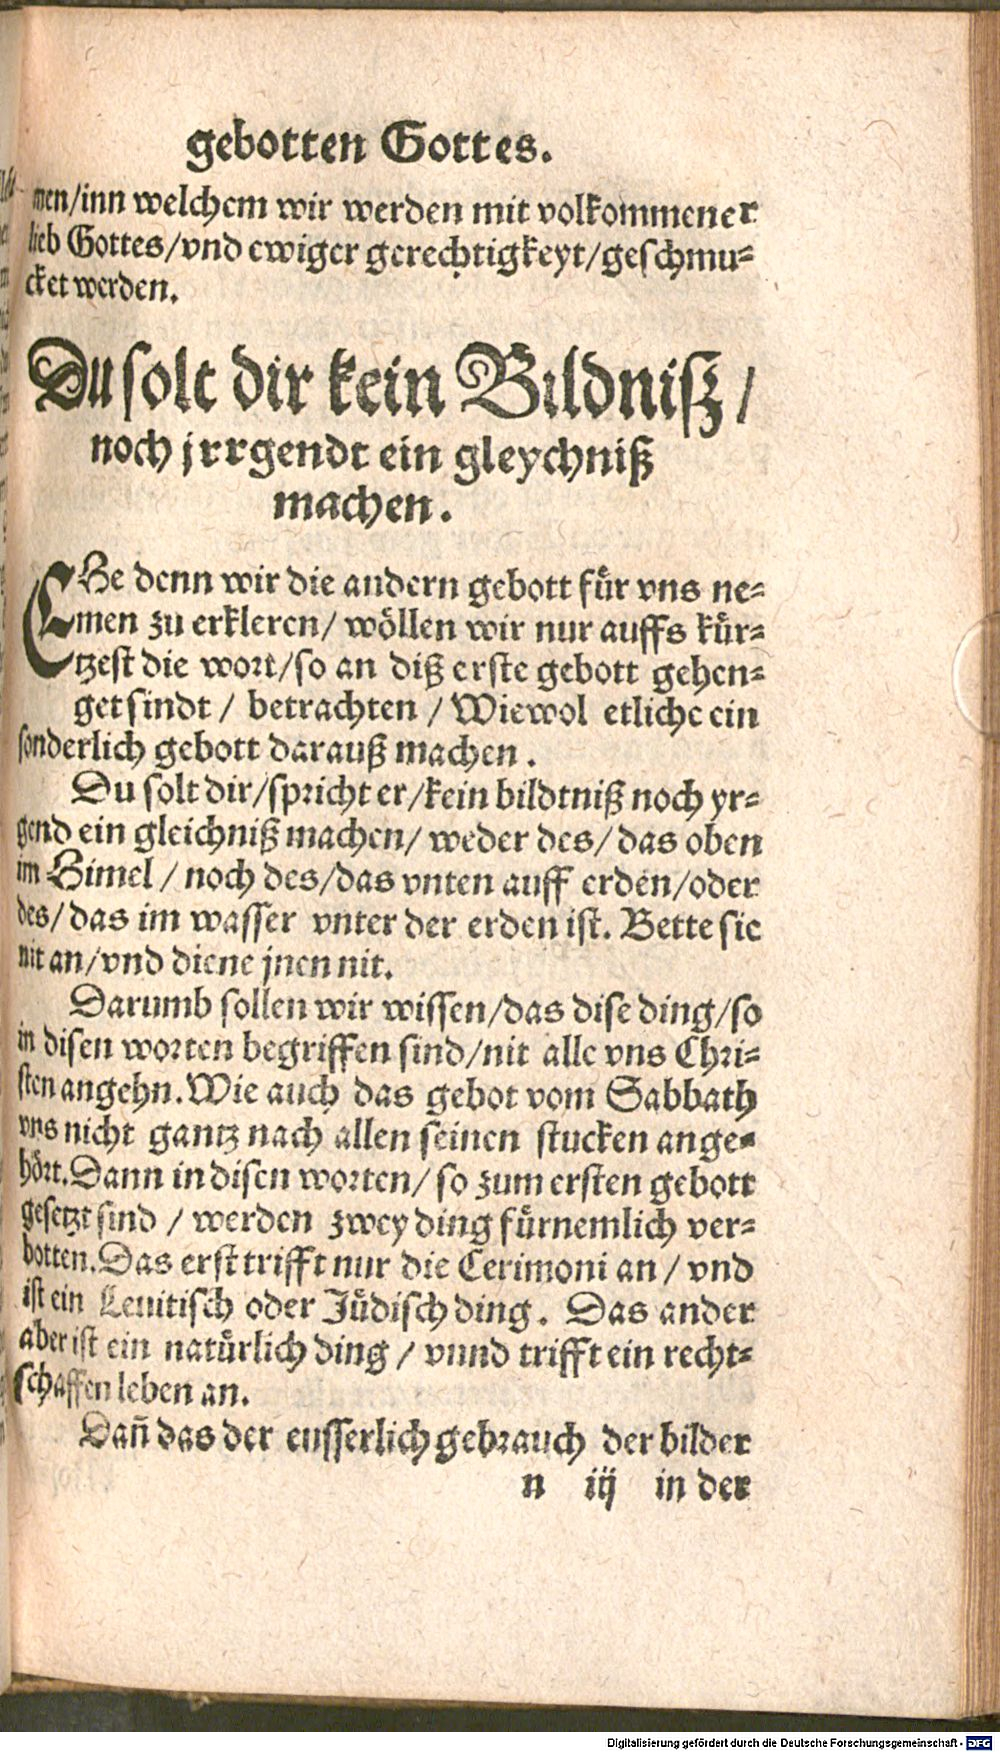 gebotten Gottes.
men/inn welchem wir werden mit volkommener
lieb Gottes/vnd ewiger gerechtigkeyt/geschmu-
cket werden.
Du solt dir kein Bildniß/
noch jrrgendt ein gleychniß
machen.
EHe denn wir die andern gebott fuͤr vns ne-
men zu erkleren/ woͤllen wir nur auffs kuͤr-
tzest die wort/so an diß erste gebott gehen-
get sindt / betrachten / Wiewol etliche ein
sonderlich gebott darauß machen.
Du solt dir/spricht er/kein bildtniß noch yr-
gend ein gleichniß machen/ weder des/ das oben
im Himel / noch des/das vnten auff erden/oder
des/ das im wasser vnter der erden ist. Bette sie
nit an/vnd diene jnen nit.
Darumb sollen wir wissen/das dise ding/so
in disen worten begriffen sind/nit alle vns Chri-
sten angehn. Wie auch das gebot vom Sabbath
vns nicht gantz nach allen seinen stucken ange-
hoͤrt. Dann in disen worten/ so zum ersten gebott
gesetzt sind / werden zwey ding fuͤrnemlich ver-
botten. Das erst trifft nur die Cerimoni an/ vnd
ist ein Leuitisch oder Juͤdisch ding. Das ander
aber ist ein natuͤrlich ding / vnnd trifft ein recht-
schaffen leben an.
Dañ das der eusserlich gebrauch der bilder
n iij in der
Digitalisierung gefördert durch die Deutsche Forschungsgemeinschaft - DFG